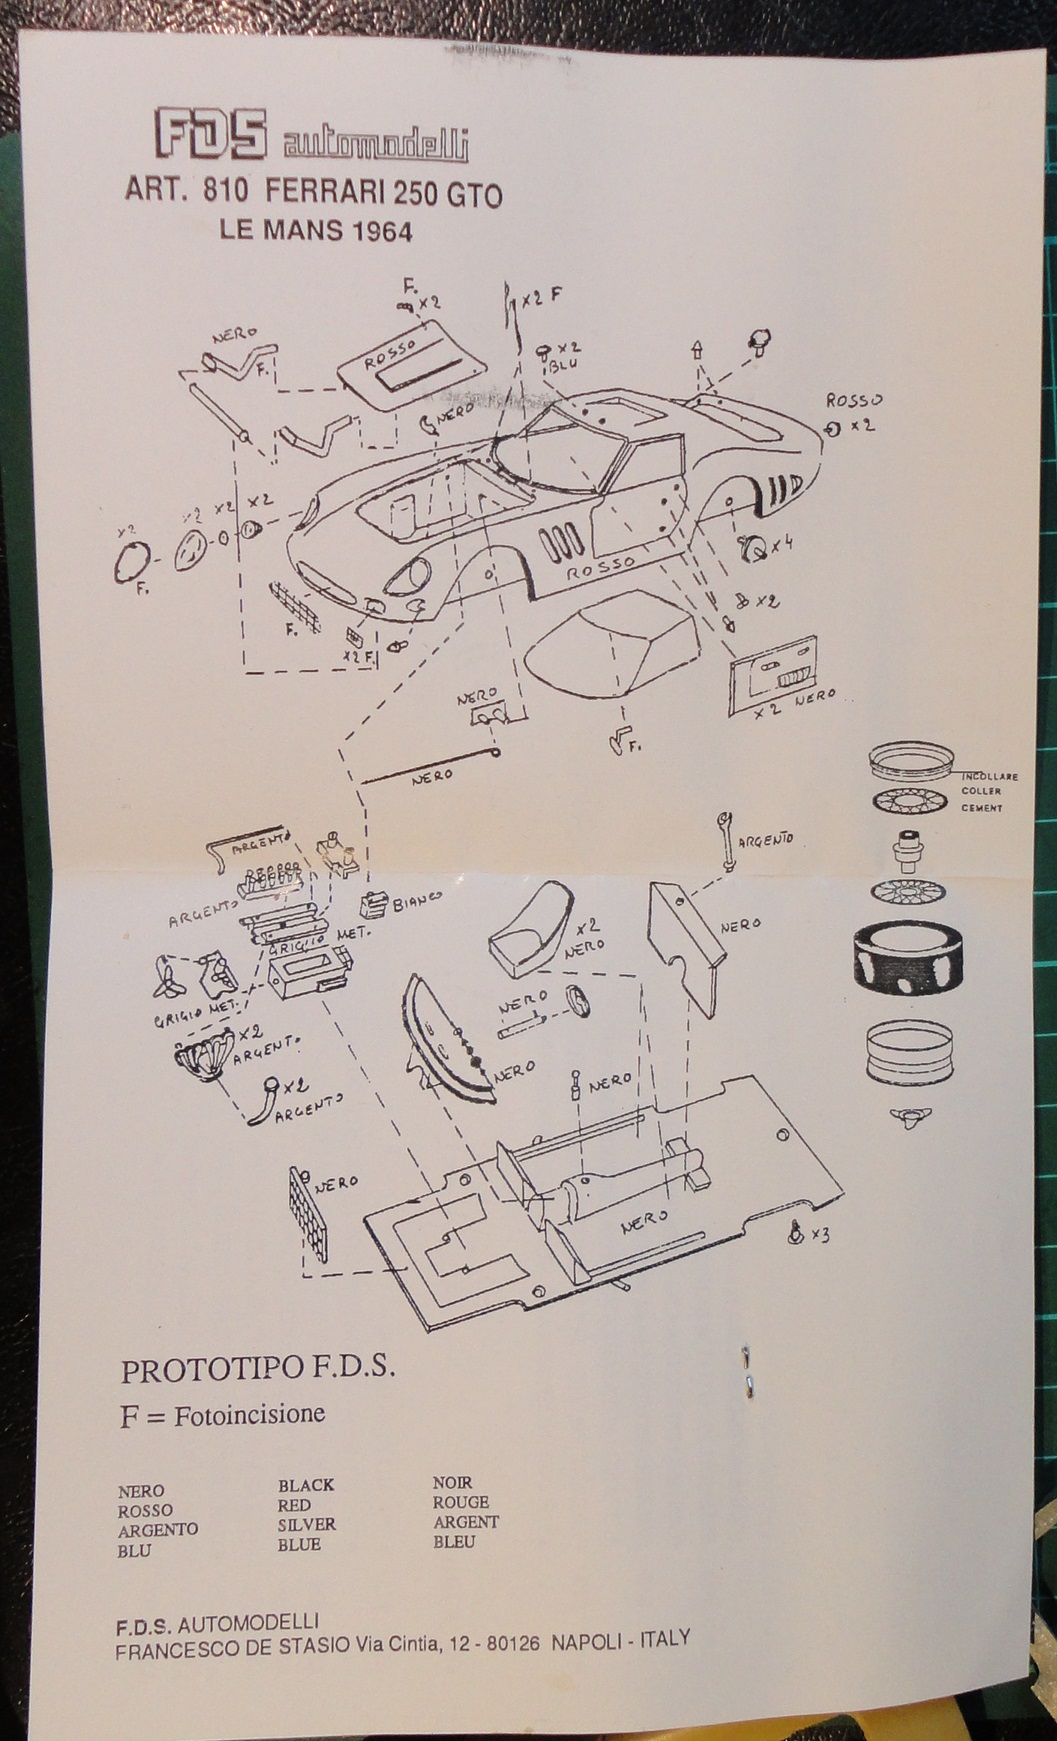 FDS automodelli
ART. 810 FERRARI 250 GTO
LE MANS 1964
F.
x2
x2 F
NERO
F.
ROSSO
x2
BLU
NERO
ROSSO
x2
x2
x2
x2
x2
F.
x4
ROSSO
F.
x2 F.
x2
NERO
x2 NERO
F.
NERO
INCOLLARE
COLLER
CEMENT
ARGENTO
ARGENTO
ARGENTO
BIANCO
x2
NERO
NERO
GRIGIO MET.
NERO
GRIGIO MET.
x2
ARGENTO
NERO
x2
ARGENTO
NERO
NERO
NERO
x3
PROTOTIPO F.D.S.
F = Fotoincisione
NERO BLACK NOIR
ROSSO RED ROUGE
ARGENTO SILVER ARGENT
BLU BLUE BLEU
F.D.S. AUTOMODELLI
FRANCESCO DE STASIO Via Cintia, 12 - 80126 NAPOLI - ITALY